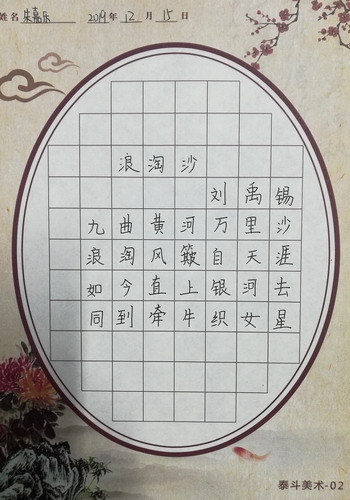 姓名 朱嘉乐 2019年 12月 15日
浪淘沙
刘禹锡
九曲黄河万里沙
浪淘风簸自天涯
如今直上银河去
同到牵牛织女星
泰斗美术-02